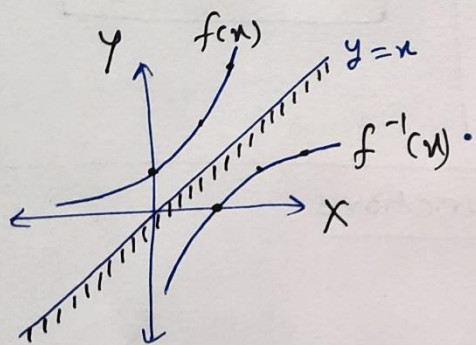 Y
f(x)
y = x
f⁻¹(x)
X